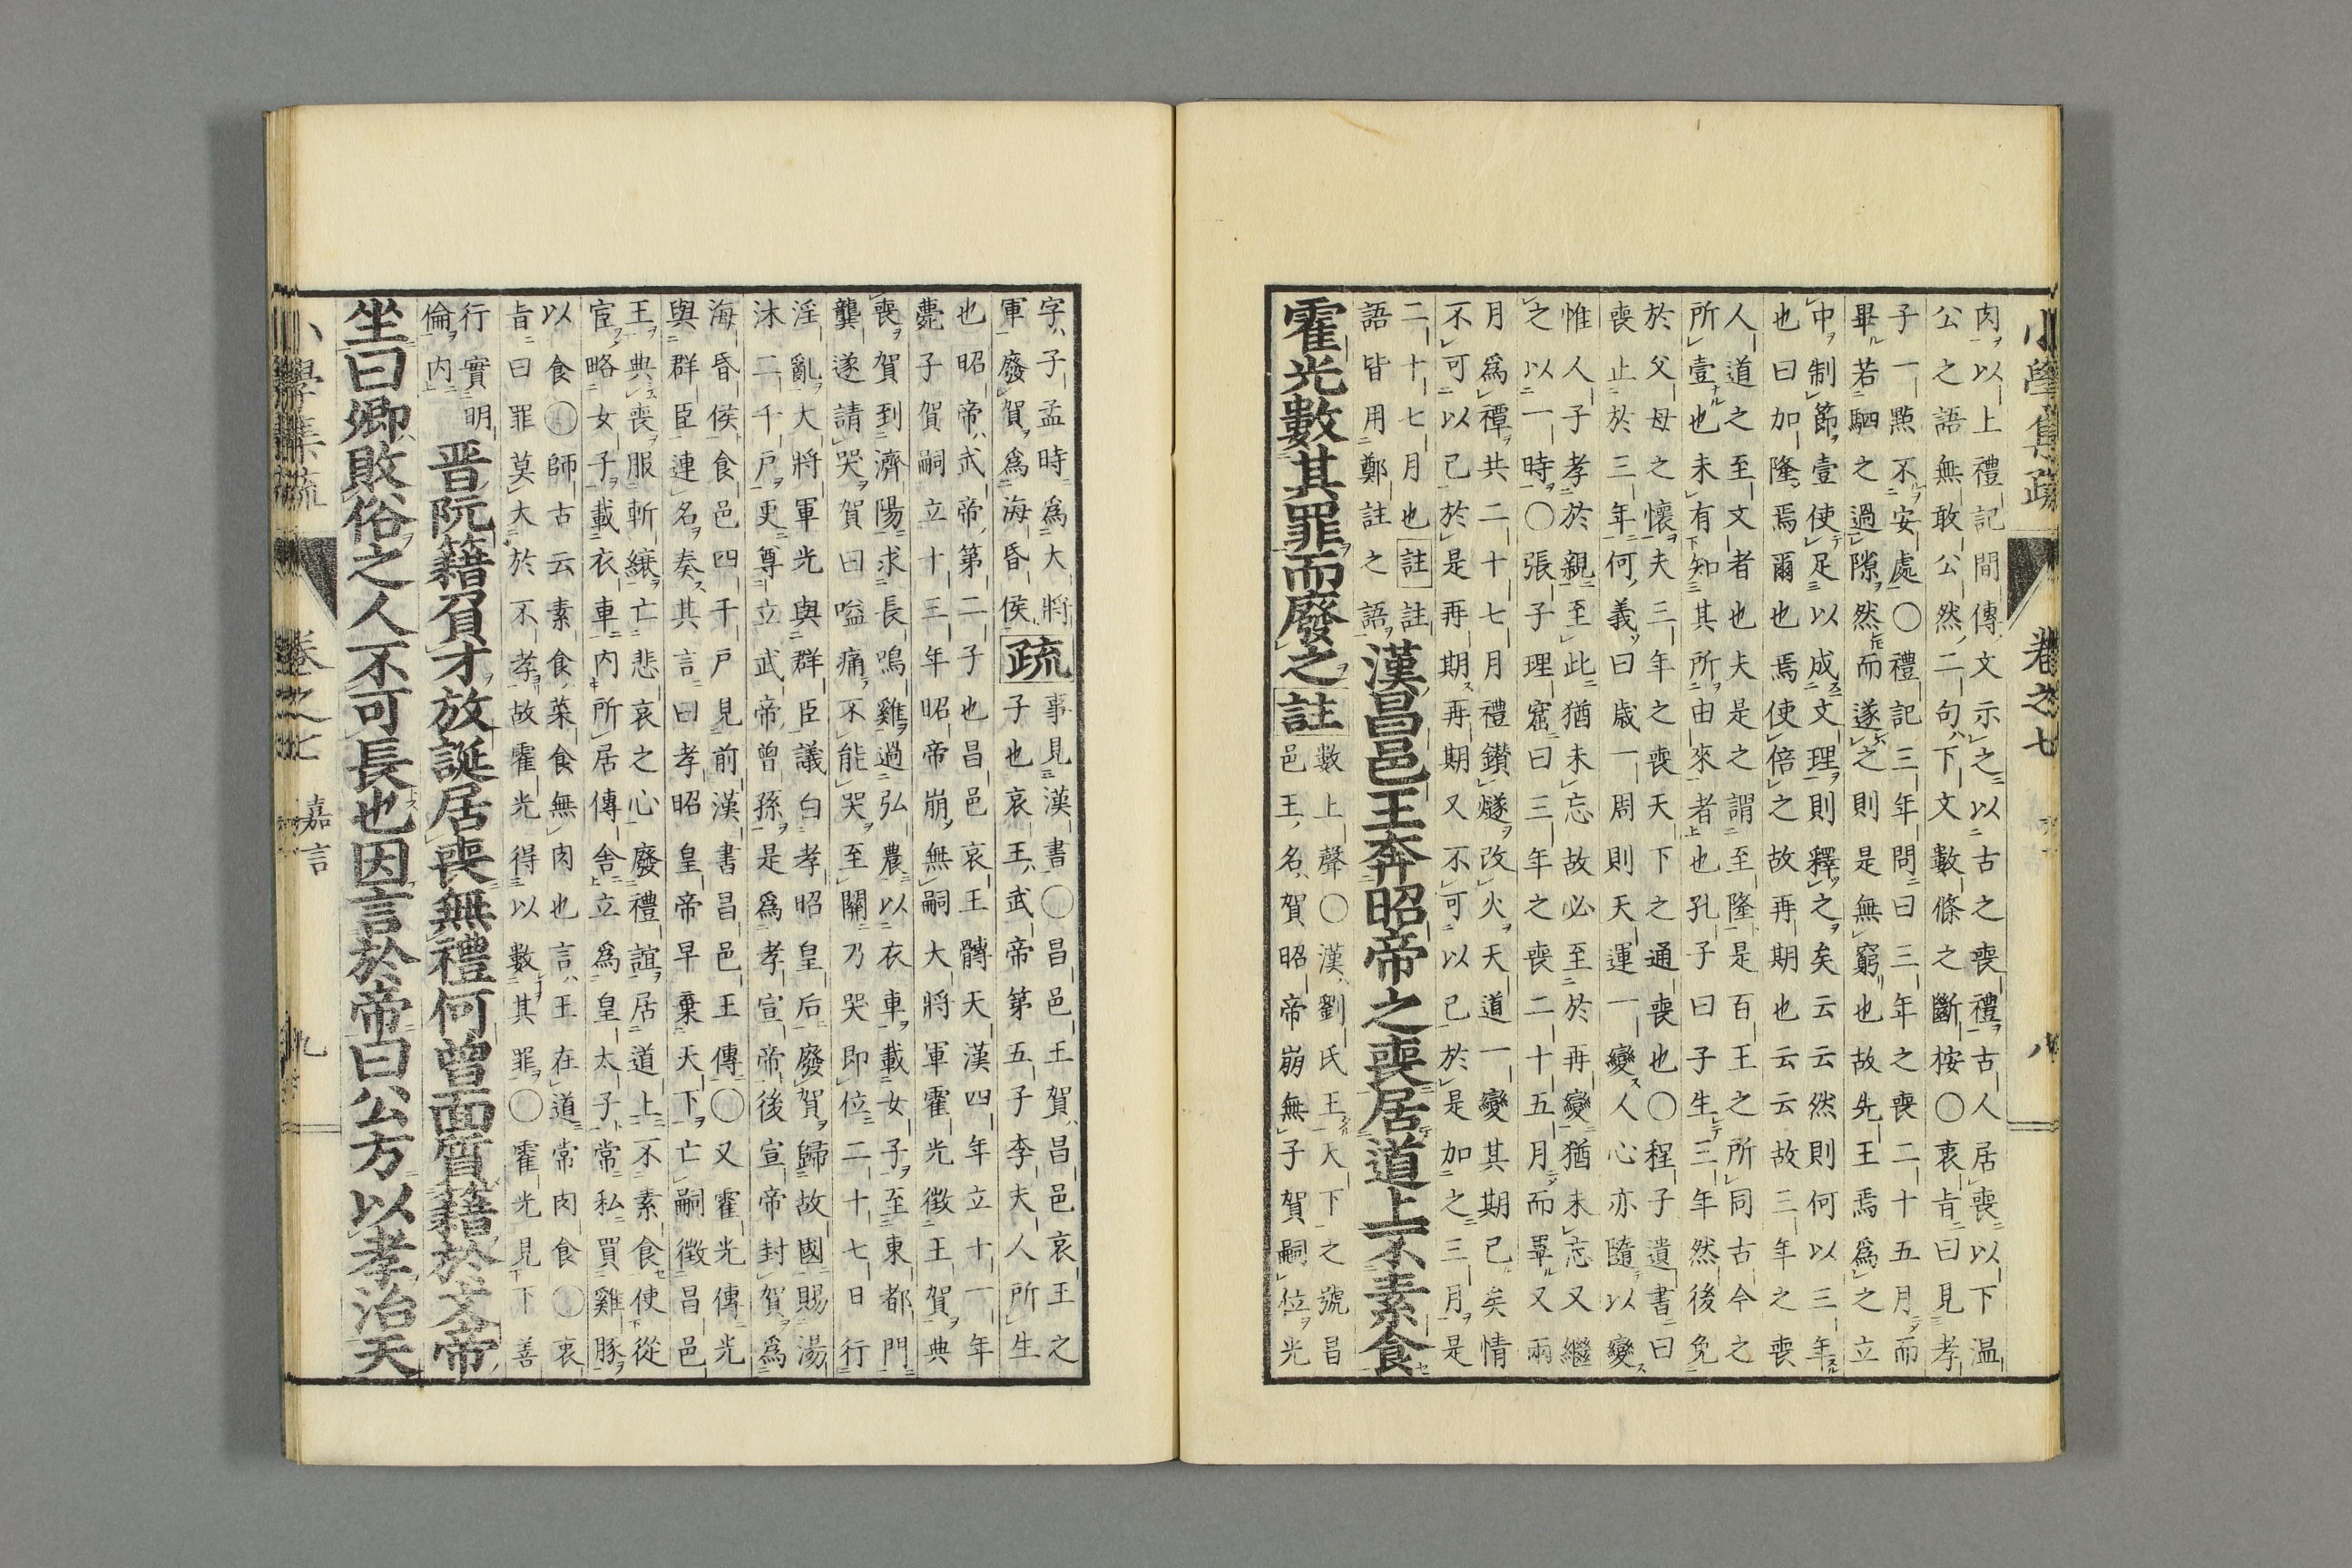 肉以上禮記間傳文示之以古之喪禮古人居喪以下温
公之語無敢公然二句下文數條之斷桉〇衷旨曰見孝
子一㸃不安處〇禮記三年問曰三年之喪二十五月而
畢若駟之過隙然而遂之則是無窮也故先王焉爲之立
中制節壹使足以成文理則釋之矣云云然則何以三年
也曰加隆焉爾也焉使倍之故再期也云云故三年之喪
人道之至文者也夫是之謂至隆是百王之所同古今之
所壹也未有知其所由來者也孔子曰子生三年然後免
於父母之懷夫三年之喪天下之通喪也〇程子遺書曰
喪止於三年何義曰歲一周則天運一變人心亦隨以變
惟人子孝於親至此猶未忘故必至於再變猶未忘又繼
之以一時〇張子理窟曰三年之喪二十五月而畢又兩
月爲禫共二十七月禮鑚燧改火天道一變其期已矣情
不可以已於是再期再期又不可以已於是加之三月是
二十七月也註註
語皆用鄭註之語
漢昌邑王奔昭帝之喪居道上不素食
霍光數其罪而廢之註
數上聲〇漢劉氏王天下之號昌
邑王名賀昭帝崩無子賀嗣位光
小學集疏 卷之七 八
字子孟時爲大將
軍廢賀爲海昏侯
疏
事見漢書〇昌邑王賀昌邑哀王之
子也哀王武帝第五子李夫人所生
也昭帝武帝第二子也昌邑哀王髆天漢四年立十一年
薨子賀嗣立十三年昭帝崩無嗣大將軍霍光徵王賀典
喪賀到濟陽求長鳴雞過弘農以衣車載女子至東都門
龔遂請哭賀曰嗌痛不能哭至闕乃哭即位二十七日行
淫亂大將軍光與群臣議白孝昭皇后廢賀歸故國賜湯
沐二千戸更尊立武帝曾孫是爲孝宣帝後宣帝封賀爲
海昏侯食邑四千戸見前漢書昌邑王傳〇又霍光傳光
與群臣連名奏其言曰孝昭皇帝早棄天下亡嗣徵昌邑
王典喪服斬縗亡悲哀之心廢禮誼居道上不素食使從
官略女子載衣車内所居傳舍立爲皇太子常私買雞豚
以食〇師古云素食菜食無肉也言王在道常肉食〇衷
旨曰罪莫大於不孝故霍光得以數其罪〇霍光見下善
行實明
倫内
晋阮籍負才放誕居喪無禮何曽面質籍於文帝
坐曰卿敗俗之人不可長也因言於帝曰公方以孝治天
小學集疏 卷之七 嘉言 九